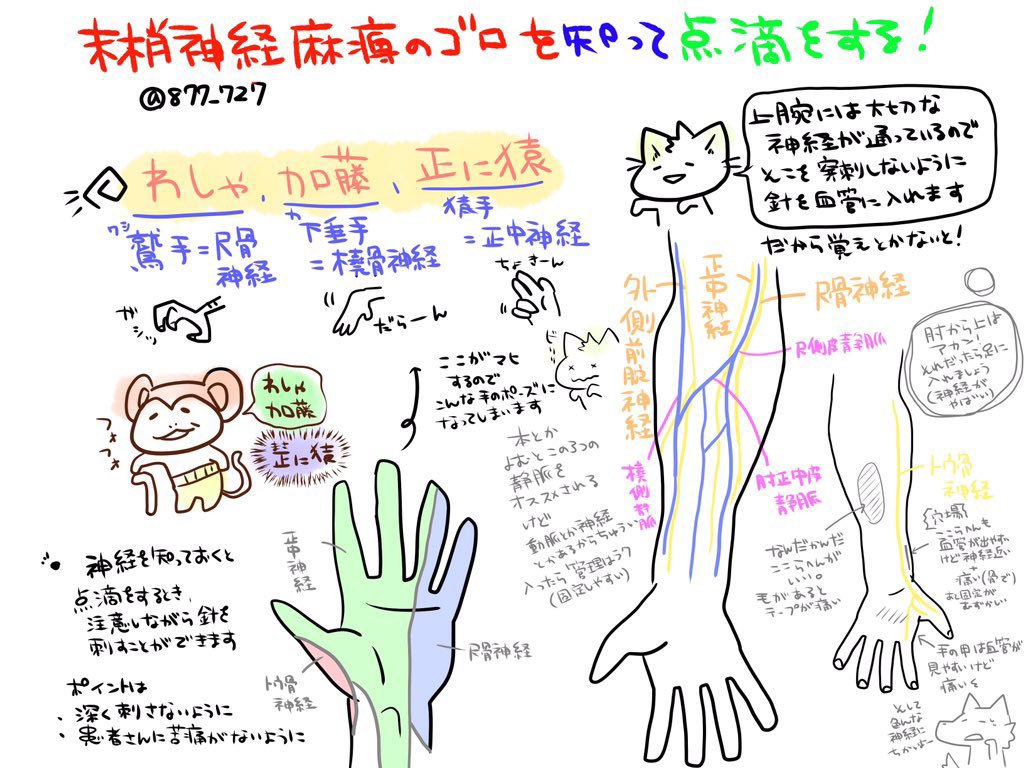 末梢神経麻痺のゴロを知って点滴をする!
@877_727
わしゃ、加藤、正に猿
ワシ
鷲手=尺骨
神経
カ
下垂手
=橈骨神経
猿手
=正中神経
ガシッ
だらーん
ちょきーん
わしゃ
加藤
正に猿
フォ
フォ
ここがマヒ
するので
こんな手のポーズに
なってしまいます
神経を知っておくと
点滴をするとき、
注意しながら針を
刺すことができます
ポイントは
・深く刺さないように
・患者さんに苦痛がないように
正中神経
トウ骨
神経
尺骨神経
本とか
よむとこの3つの
静脈を
オススメされる
けど
動脈とか神経
とかあるからちゅうい
入ったら管理はラク
(固定しやすい)
上腕には大切な
神経が通っているので
そこを穿刺しないように
針を血管に入れます
だから覚えとかないと!
外側前腕神経
正中神経
尺骨神経
尺側皮静脈
橈側皮静脈
肘正中皮
静脈
肘から上は
アカン!
それだったら足に
入れましょう
(神経が
やばい)
トウ骨
神経
{穴場}
ここらへんも
血管が出やすい
けど神経近い
+
痛い(骨で)
あと固定が
むずかしい
なんだかんだ
ここらへんが
いい。
毛があると
テープが痛い
手の甲は血管が
見やすいけど
痛いを
そして
色んな
神経に
ちかいよー